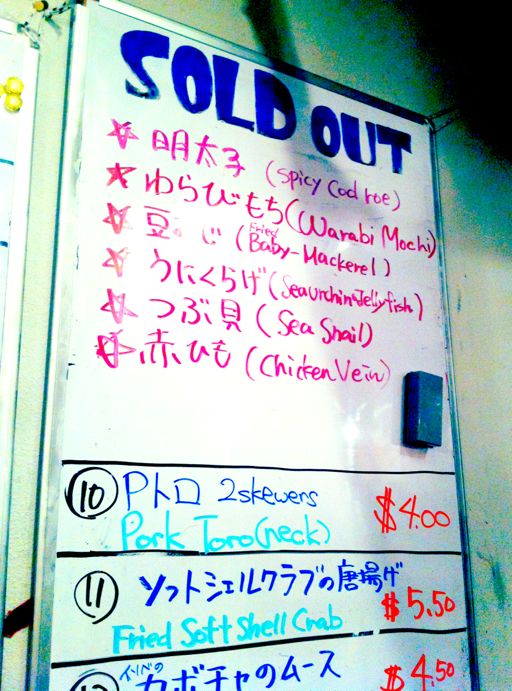 SOLD OUT
明太子 (Spicy Cod roe)
わらびもち (Warabi Mochi)
豆あじ (Fried Baby-Mackerel)
うにくらげ (Sea urchin & Jellyfish)
つぶ貝 (Sea Snail)
赤ひも (Chicken Vein)
10 Pトロ 2skewers $4.00
Pork Toro (neck)
11 ソフトシェルクラブの唐揚げ $5.50
Fried Soft Shell Crab
カボチャのムース $4.50